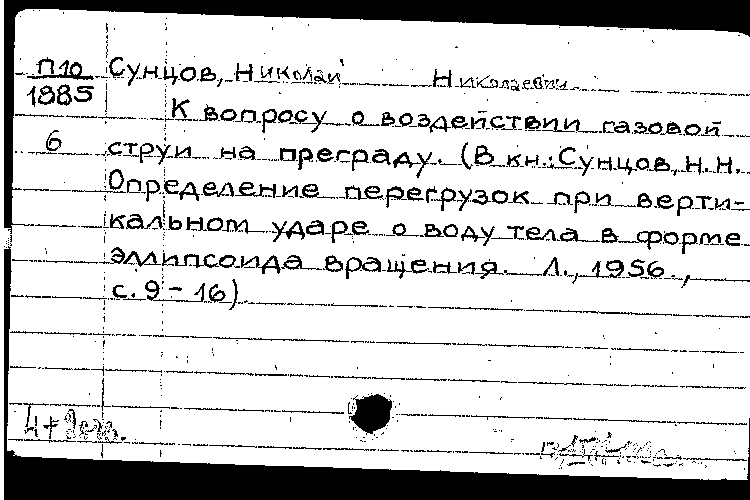 П10 Сунцов, Николай Николаевич
1885
К вопросу о воздействии газовой
6 струи на преграду. (В кн.: Сунцов, Н.Н.
Определение перегрузок при верти-
кальном ударе о воду тела в форме
эллипсоида вращения. Л., 1956.,
с. 9 - 16)
4+